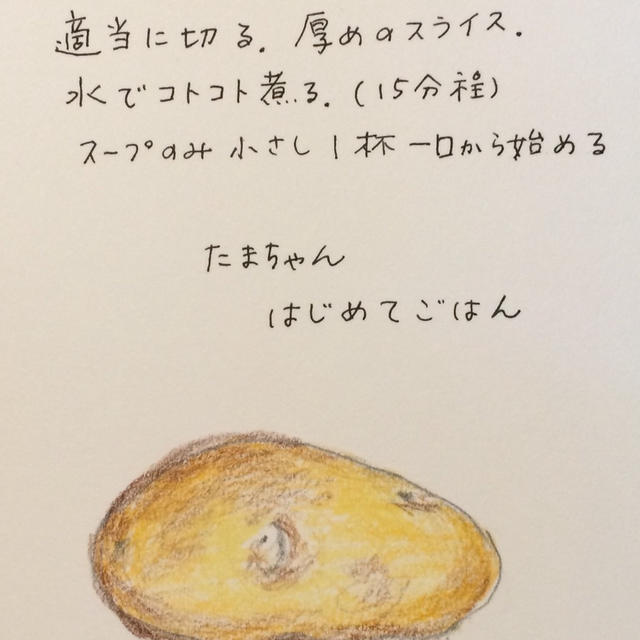 適当に切る. 厚めのスライス.
水でコトコト煮る. (15分程)
スープのみ 小さじ1杯 一口から始める
たまちゃん
はじめてごはん